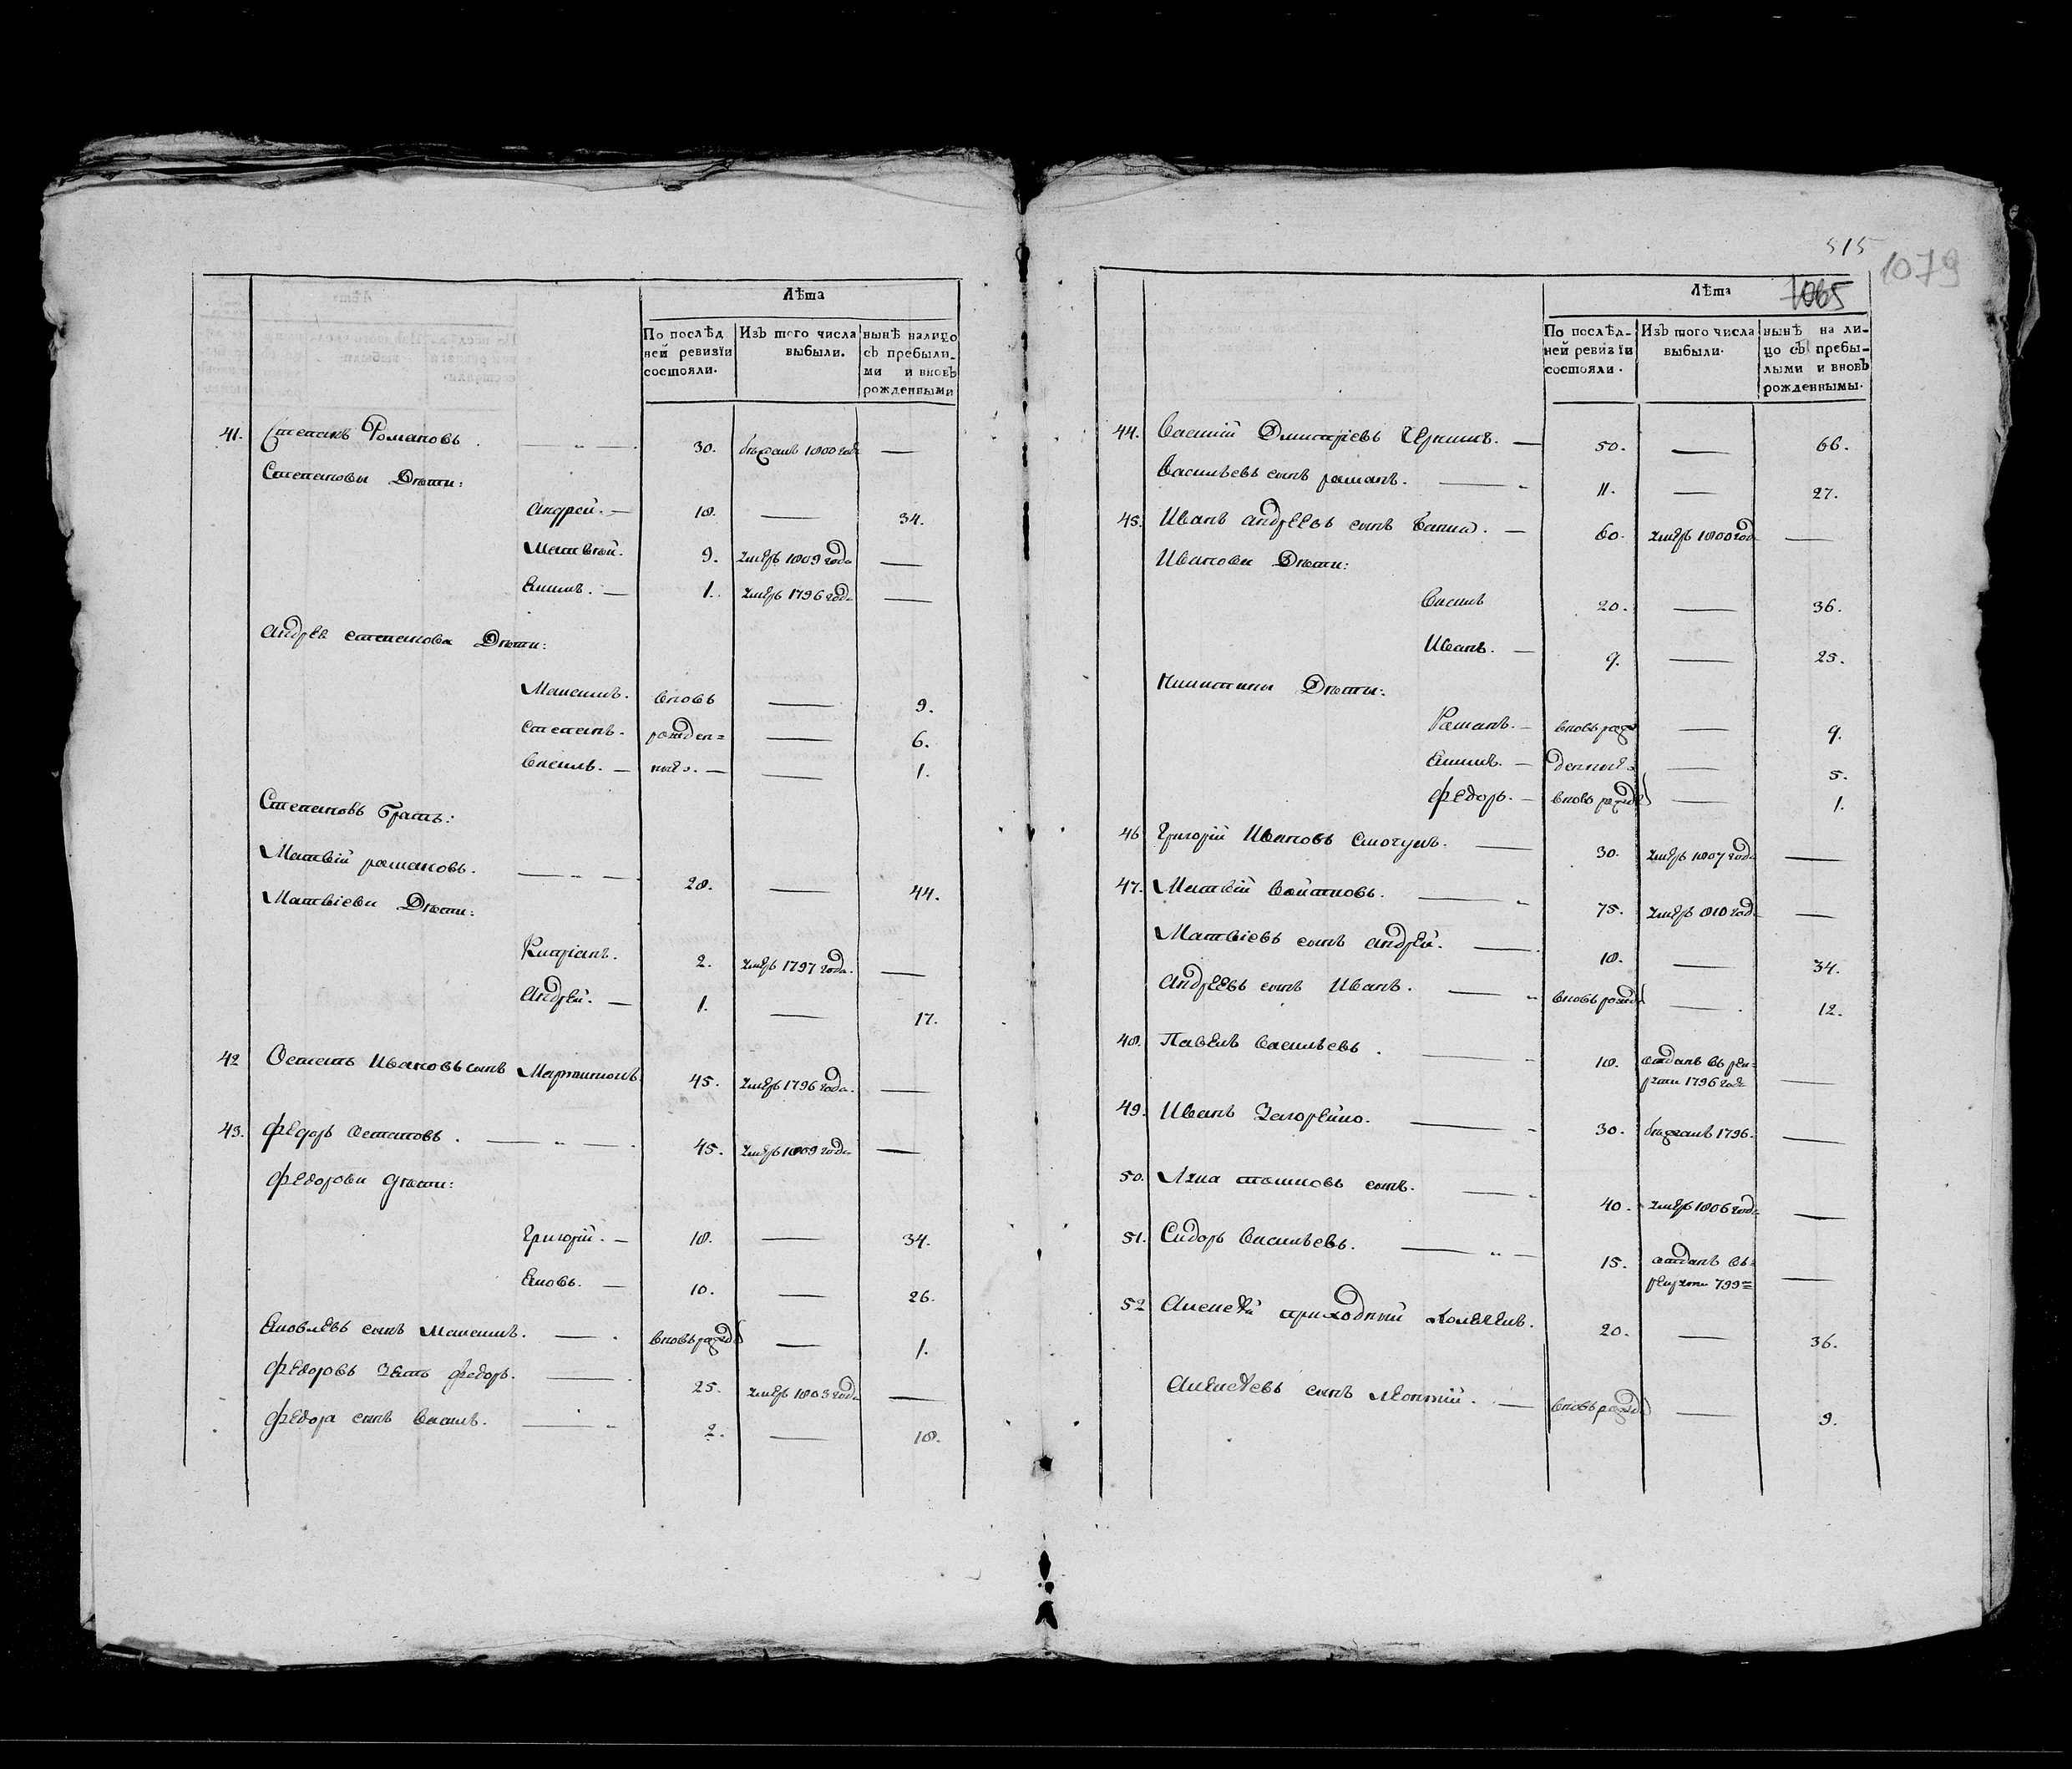 Лѣта
По послѣд ней ревизіи состояли.
Изъ того числа выбыли.
нынѣ налицо съ пребылими и вновь рожденными
41. Степанъ Романовъ. 30. бѣжалъ 1800 года —
Степановы Дѣти:
Андрей. — 18. — 34.
Матвѣй. 9. умеръ 1809 года —
1. умеръ 1796 года —
Андрея Степанова Дѣти:
Максимъ. вновь — 9.
Степанъ. рожден= — 6.
Василь. — ные. — — 1.
Степановъ братъ:
Матвій Романовъ. 28. — 44.
Матвіеви Дѣти:
Кипріанъ. 2. умеръ 1797 года. —
Андрей. — 1. — 17.
42 Остапъ Ивановъ сынъ 45. умеръ 1796 года. —
43. Федоръ Остаповъ. 45. умеръ 1809 года —
Федорови Дѣти:
Григорій. — 18. — 34.
Яковъ. — 10. — 26.
Яковлевъ сынъ Максимъ. — вновь рожд — 1.
Федоровъ Зять Федоръ. — 25. умеръ 1803 года —
Федора сынъ Василь. — 2. — 18.
515
1079
1065
Лѣта
По послѣд-ней ревизіи состояли.
Изъ того числа выбыли.
нынѣ на ли-цо съ пребы-лыми и вновь рожденнымы.
44. Василій Дмитріевъ — 50. — 66.
Васильевъ сынъ Романъ. — 11. — 27.
45. Иванъ Андреевъ сынъ — 60. умеръ 1800 год —
Иванови Дѣти:
Василь 20. — 36.
Иванъ. — 9. — 25.
Дѣти:
Романъ. — вновь рож — 9.
денные — 5.
Федоръ. — вновь рожд — 1.
46 Григорій Ивановъ — 30. умеръ 1807 года —
47. Матвій 75. умеръ 810 года —
Матвіевъ сынъ Андрей. — 18. — 34.
Андреевъ сынъ Иванъ. — вновь рожд — 12.
48. Павелъ Васильевъ. — 18. отданъ въ рек=
руты 1796 год —
49. Иванъ — 30. бѣжалъ 1796. —
50. сынъ. — 40. умеръ 1806 года —
51. Сидоръ Васильевъ. — 15. отданъ въ=
рекруты 799 —
52 Алексѣй приходный 20. — 36.
Алексѣевъ сынъ Леонтій. — вновь рожд — 9.